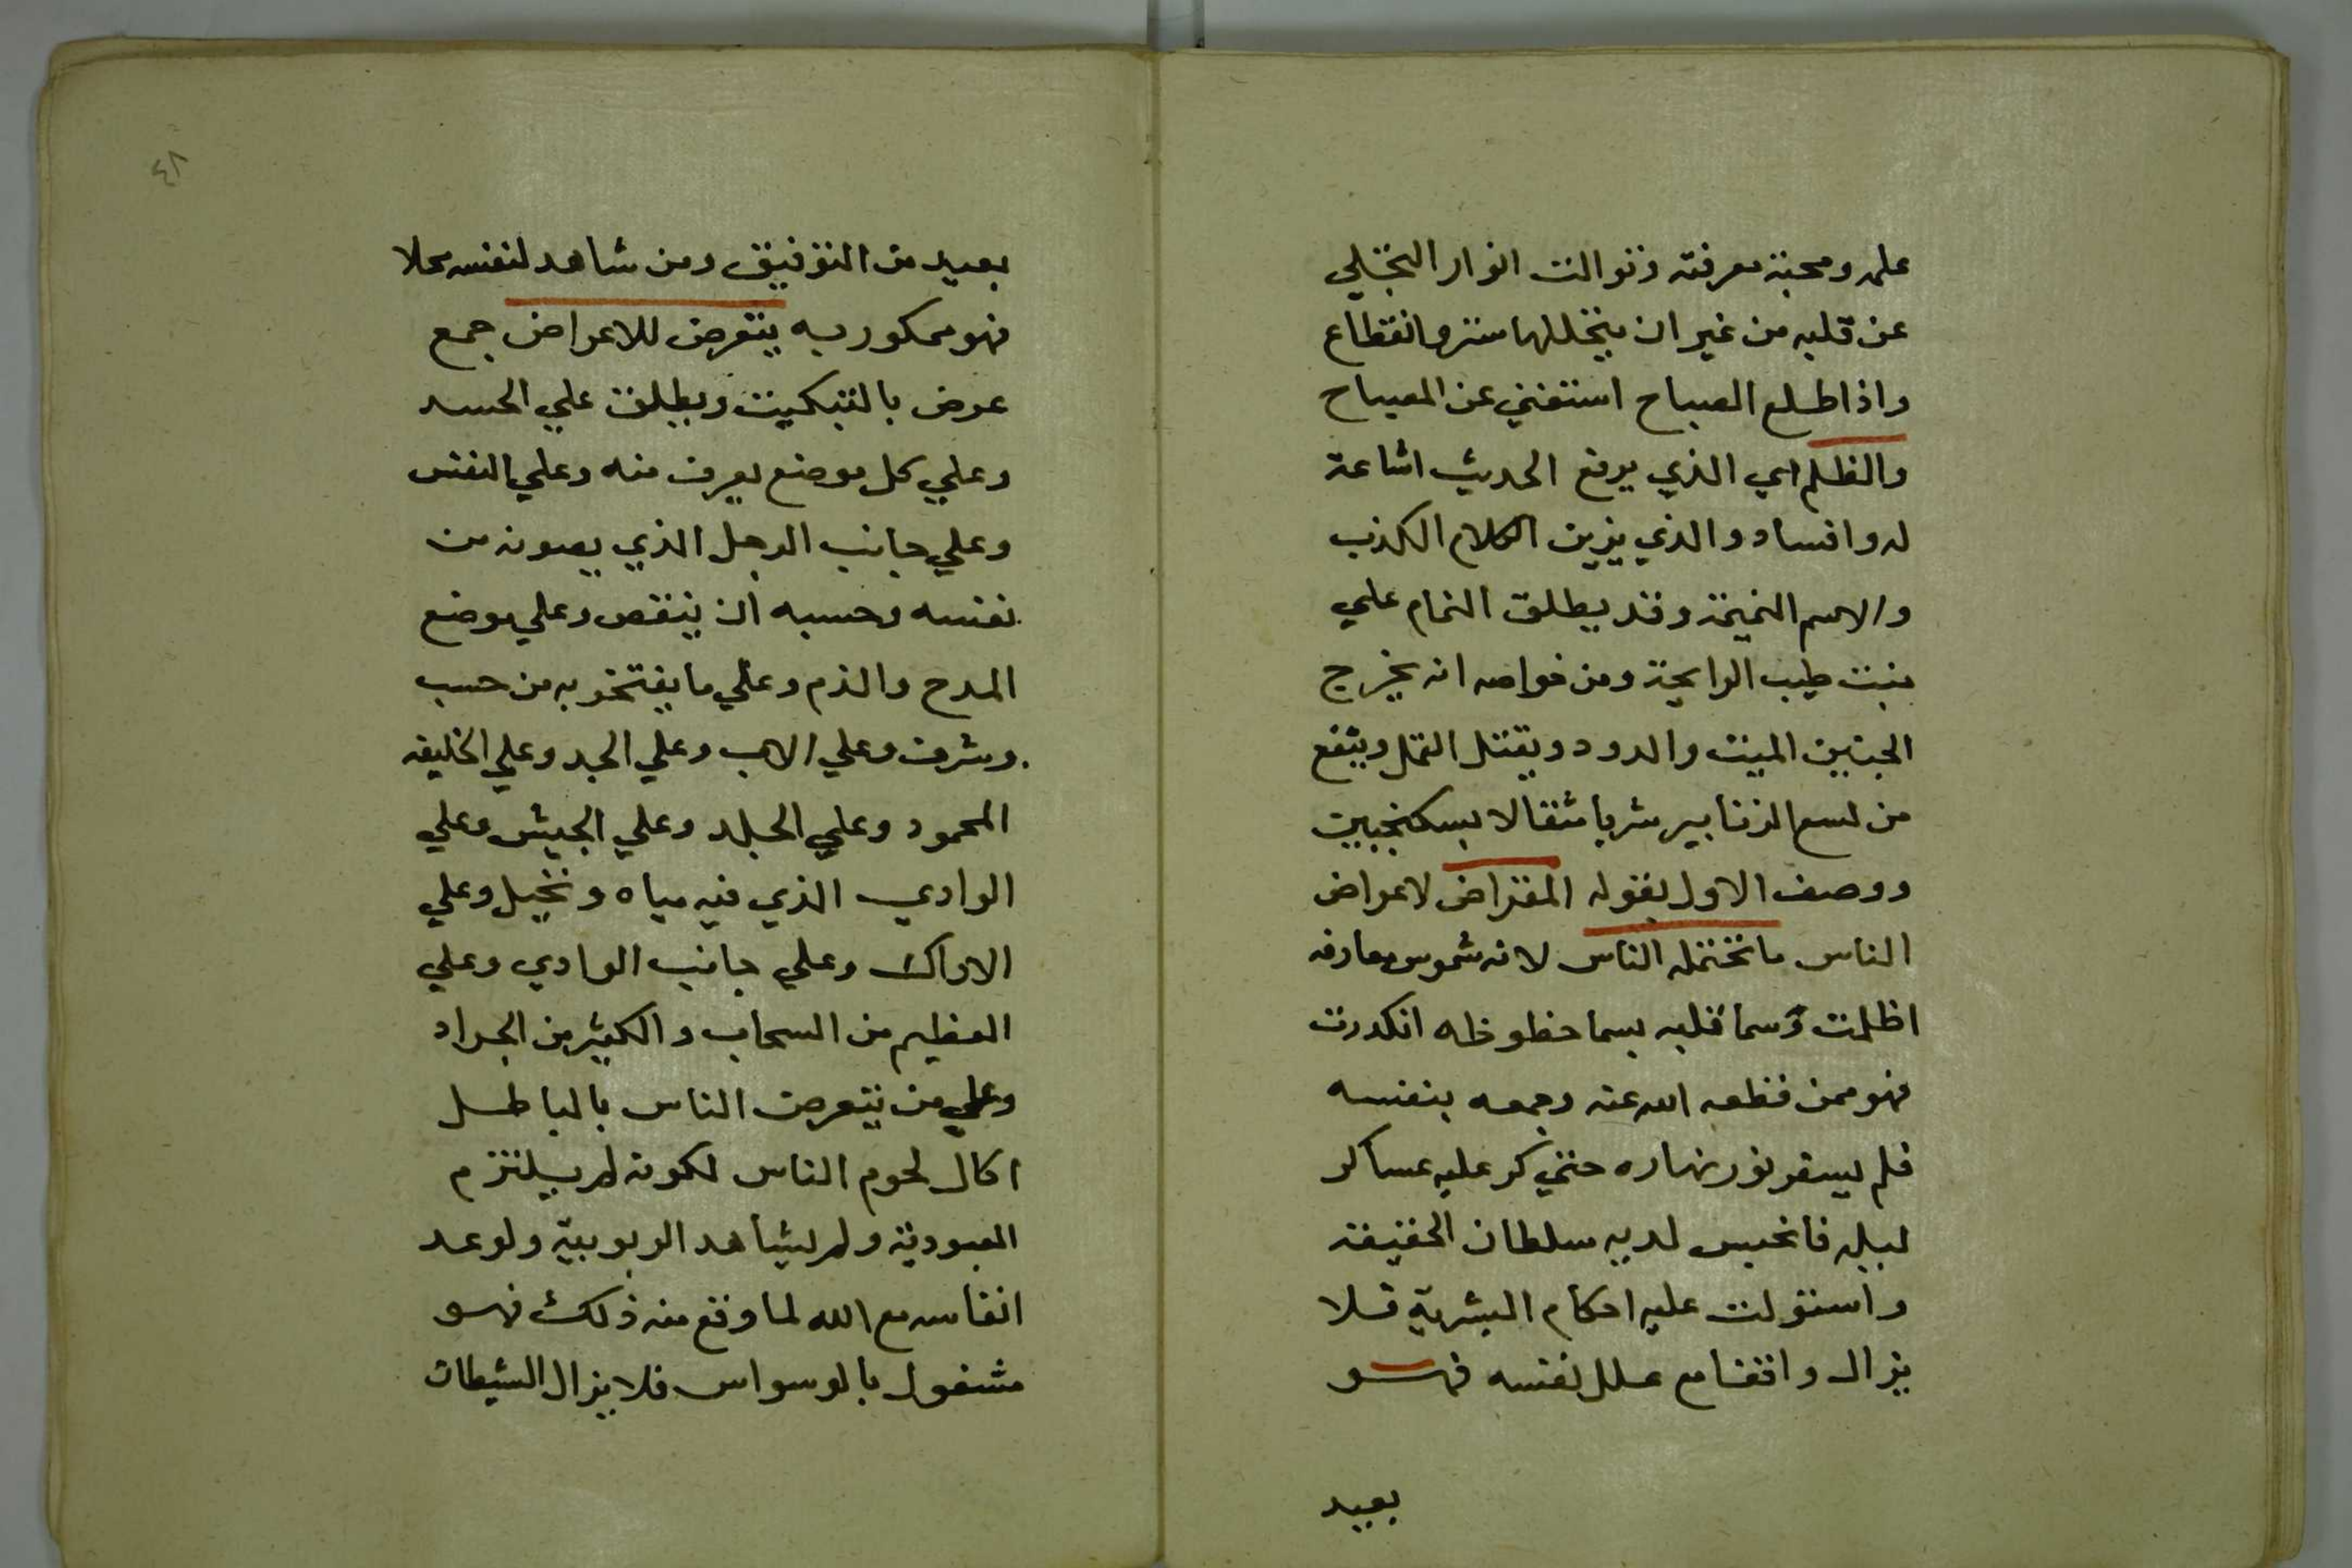 علمه ومحبة معرفته وتوالت انوار التجلي
عن قلبه من غير ان يتخللها ستر وانقطاع
واذا طلع الصباح استغني عن المصباح
والظلم اي الذي يرفع الحديث اشاعة
له وافساد والذي يزين الكلام الكذب
والاسم النميمة وقد يطلق النمام علي
نبت طيب الرايحة ومن خواصه انه يخرج
الجنين الميت والدود ويقتل القمل وينفع
من لسع الزنابير شربا مثقالا بسكنجبين
ووصف الاول بقوله المقتراض لاعراض
الناس ما تختتمله الناس لانه شموس معارفه
اظلمت وسما قلبه بسما حظوظه انكدرت
فهو ممن قطعه الله عنه وجمعه بنفسه
فلم يسفر نور نهاره حتي كر عليه عساكر
ليله فانحبس لديه سلطان الحقيقة
واستولت عليه احكام البشرية فلا
يزال واقفا مع علل نفسه فهو
بعيد
٤٨
بعيد من التوفيق ومن شاهد لنفسه محلا
فهو ممكور به يتعرض للاعراض جمع
عرض بالتبكيت ويطلق علي الجسد
وعلي كل موضع يعرق منه وعلي النفس
وعلي جانب الرجل الذي يصونه من
نفسه وحسبه ان ينقص وعلي موضع
المدح والذم وعلي ما يفتخر به من حسب
وشرف وعلي الاب وعلي الجد وعلي الخليقه
المحمود وعلي الجلد وعلي الجيش وعلي
الوادي الذي فيه مياه ونخيل وعلي
الاراك وعلي جانب الوادي وعلي
العظيم من السحاب والكثير من الجراد
وعلي من يتعرض الناس بالباطل
اكال لحوم الناس لكونه لم يلتزم
العبودية ولم يشاهد الربوبية ولو عد
انفاسه مع الله لما وقع منه ذلك فهو
مشغول بالوسواس فلا يزال الشيطان